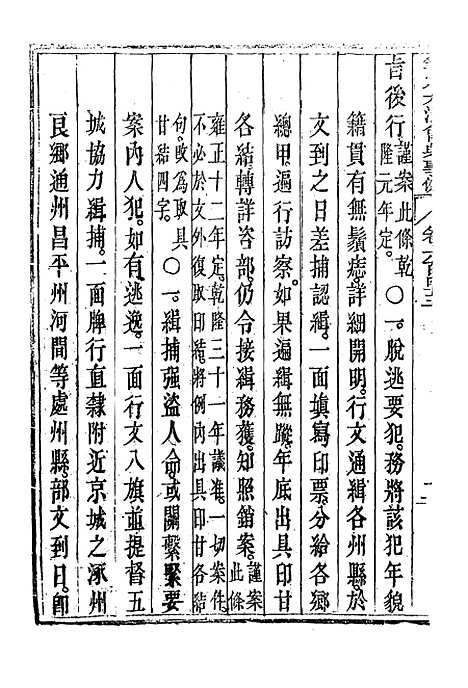 旨後行謹案此條乾隆元年定。○一。脫逃要犯。務將該犯年貌
籍貫有無鬚痣。詳細開明。行文通緝各州縣。於
文到之日。差捕認緝。一面塡寫印票。分給各鄉
總甲。遍行訪察。如果遍緝無蹤。年底出具印甘
各結。轉詳咨部。仍令接緝務獲。知照銷案。謹案此條
雍正十二年定。乾隆三十一年議准。一切案件。不必於文外復取印結。將例內出具印甘各結
句。改爲取具甘結四字。○一。緝捕强盜人命。或關繫緊要
案內人犯。如有逃逸。一面行文八旗。並提督五
城協力緝捕。一面牌行直隸附近京城之涿州
良鄉通州昌平州河間等處州縣。部文到日。卽